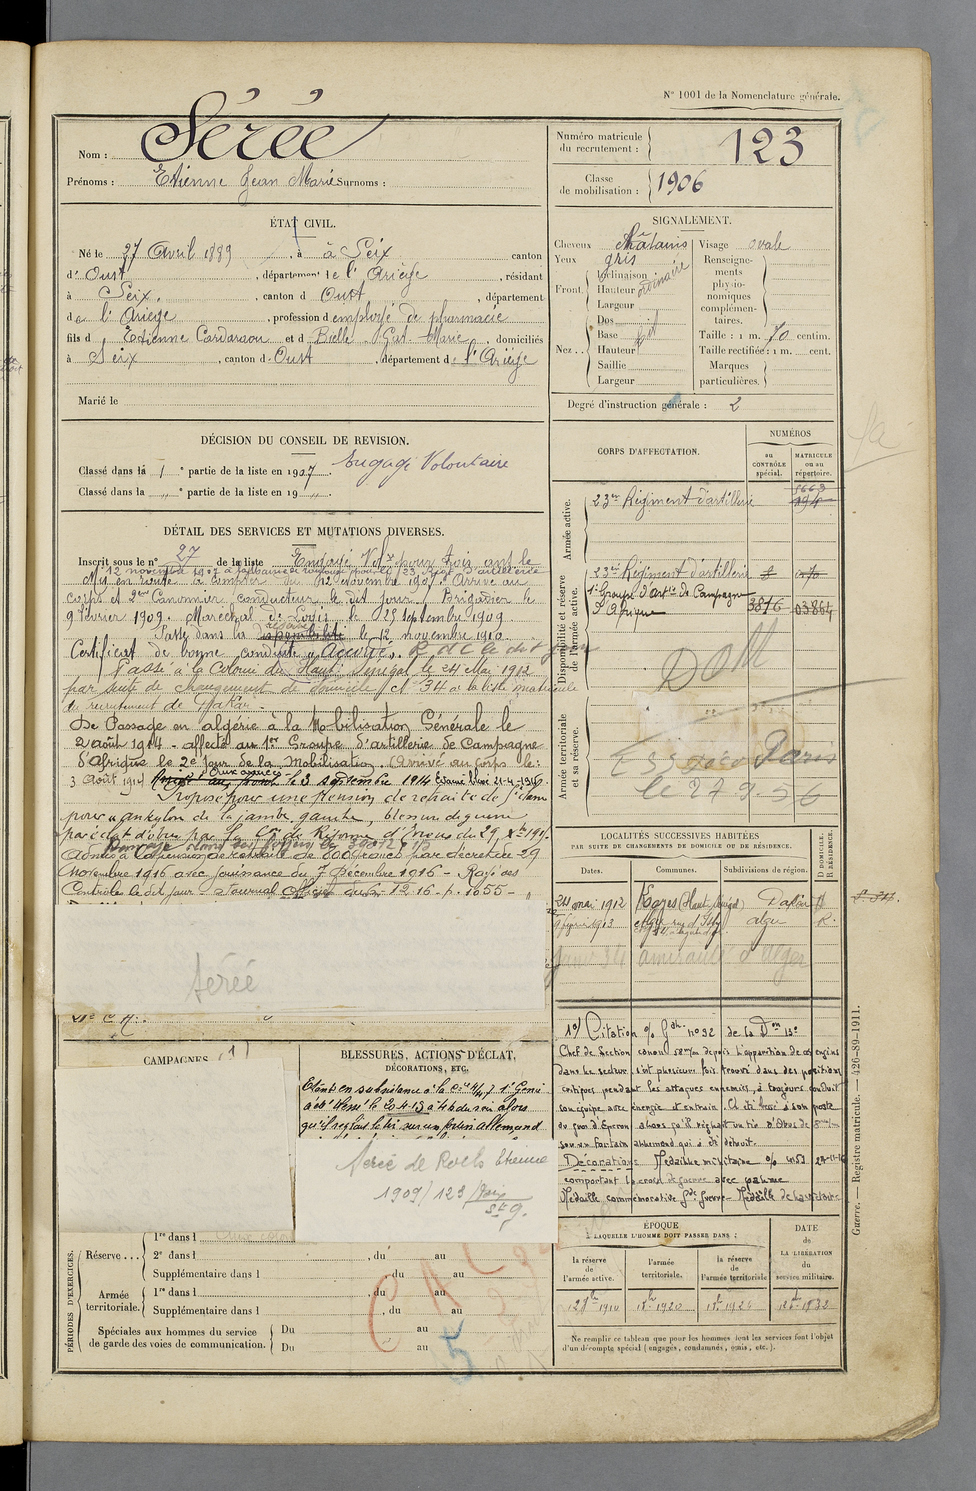 N° 1001 de la Nomenclature générale.
Nom : Sérée
Prénoms : Etienne Jean Marie Surnoms :
Numéro matricule du recrutement : 123
Classe de mobilisation : 1906
ÉTAT CIVIL.
Né le 27 Avril 1889, à à Seix canton
d' Oust, département de l'Ariège, résidant
à Seix, canton d Oust, département
de l'Ariège, profession d employé de pharmacie
fils d Etienne et d Marie, domiciliés
à Seix, canton d Oust, département de l'Ariège
Marié le
SIGNALEMENT.
Cheveux châtains
Yeux gris
Front. Inclinaison
Hauteur ordinaire
Largeur
Nez.. Dos
Base
Hauteur
Saillie
Largeur
Visage ovale
Renseignements physionomiques complémentaires.
Taille : 1 m. 70 centim.
Taille rectifiée : 1 m. cent.
Marques particulières.
Degré d'instruction générale : 2
DÉCISION DU CONSEIL DE REVISION.
Classé dans la 1e partie de la liste en 1907. Engagé Volontaire
Classé dans la " e partie de la liste en 19 "
CORPS D'AFFECTATION.
NUMÉROS
au CONTRÔLE spécial.
MATRICULE ou au répertoire.
Armée active.
23me Régiment d'artillerie
Disponibilité et réserve de l'armée active.
23me Régiment d'artillerie
1er Groupe d'artie de Campagne
d'Afrique 3816 03864
DOM
Armée territoriale et sa réserve.
Paris
le 27.9.56
DÉTAIL DES SERVICES ET MUTATIONS DIVERSES.
Inscrit sous le n° 27 de la liste Engagé Volre pour trois ans le
12 novembre 1907 à la Mairie de Toulouse pour le 23 Régt d'artillerie
Mis en route à compter du 12 Novembre 1907. Arrivé au
corps et 2me Canonnier conducteur le dit jour. Brigadier le
9 février 1909. Maréchal des Logis le 25 septembre 1909.
Passé dans la réserve disponibilité le 12 novembre 1910.
Certificat de bonne conduite "Accordé". R.d.C. le dit jour
Passé à la Colonie du Haut Sénégal le 24 Mai 1912
par suite de changement de domicile N° 34 à la liste matricule
de recrutement de Dakar.
De Passage en algérie à la Mobilisation Générale le
2 août 1914 - affecté au 1er Groupe d'artillerie de Campagne
d'Afrique le 2e Jour de la Mobilisation (Arrivé au Corps le:
3 Août 1914) Aux armées le 3 septembre 1914 Evacué blessé 21-4-1915
Proposé pour une Pension de retraite de
pour ankylose de la jambe gauche, blessure de guerre
par éclat d'obus par la Con de Réforme d'
Admis à la pension de retraite de 800 francs par décret du 29
Novembre 1916 avec jouissance du 7 Décembre 1916 - Rayé des
Contrôles le dit jour - Journal Officiel du 12-16 - p. 1055 -
Sérée
LOCALITÉS SUCCESSIVES HABITÉES
PAR SUITE DE CHANGEMENTS DE DOMICILE OU DE RÉSIDENCE.
Dates. Communes. Subdivisions de région. D. DOMICILE. R. RÉSIDENCE.
24 mai 1912 Kayes (Haut Sénégal) Dakar D
1913 alger R.
amirauté d'Alger
CAMPAGNES
BLESSURES, ACTIONS D'ÉCLAT, DÉCORATIONS, ETC.
Etant en subsistance à la Cie 4/17 du 1er Génie
a été blessé le 20-4-15 à 4 h du soir alors
qu'il réglait le tir sur un fortin allemand
Sérée de Roels Etienne
1909/123/Foix
St G.
1°/ Citation o/ Gal n° 92 de la Don
Chef de Section canon 58 m/m depuis l'apparition de ces engins
dans le secteur, s'est plusieurs fois trouvé dans des positions
critiques pendant les attaques ennemies, a toujours conduit
son équipe avec énergie et entrain. A été blessé à son poste
alors qu'il réglait un tir d'obus de
sur un fortin allemand qui a été détruit.
Décorations Médaille militaire
comportant la croix de guerre avec palme
Médaille commémorative Gde Guerre - Médaille de la Victoire
PÉRIODES D'EXERCICES.
Réserve... 1re dans l
2e dans l , du au
Supplémentaire dans l , du au
Armée territoriale. 1re dans l , du au
Supplémentaire dans l , du au
Spéciales aux hommes du service de garde des voies de communication. Du au
Du au
CAC
5
ÉPOQUE
À LAQUELLE L'HOMME DOIT PASSER DANS :
la réserve de l'armée active.
l'armée territoriale.
la réserve de l'armée territoriale
DATE de LA LIBÉRATION du service militaire.
12 9bre 1910
1920
1926
1932
Ne remplir ce tableau que pour les hommes dont les services font l'objet
d'un décompte spécial (engagés, condamnés, omis, etc.).
Guerre. — Registre matricule. — 426-89-1911.